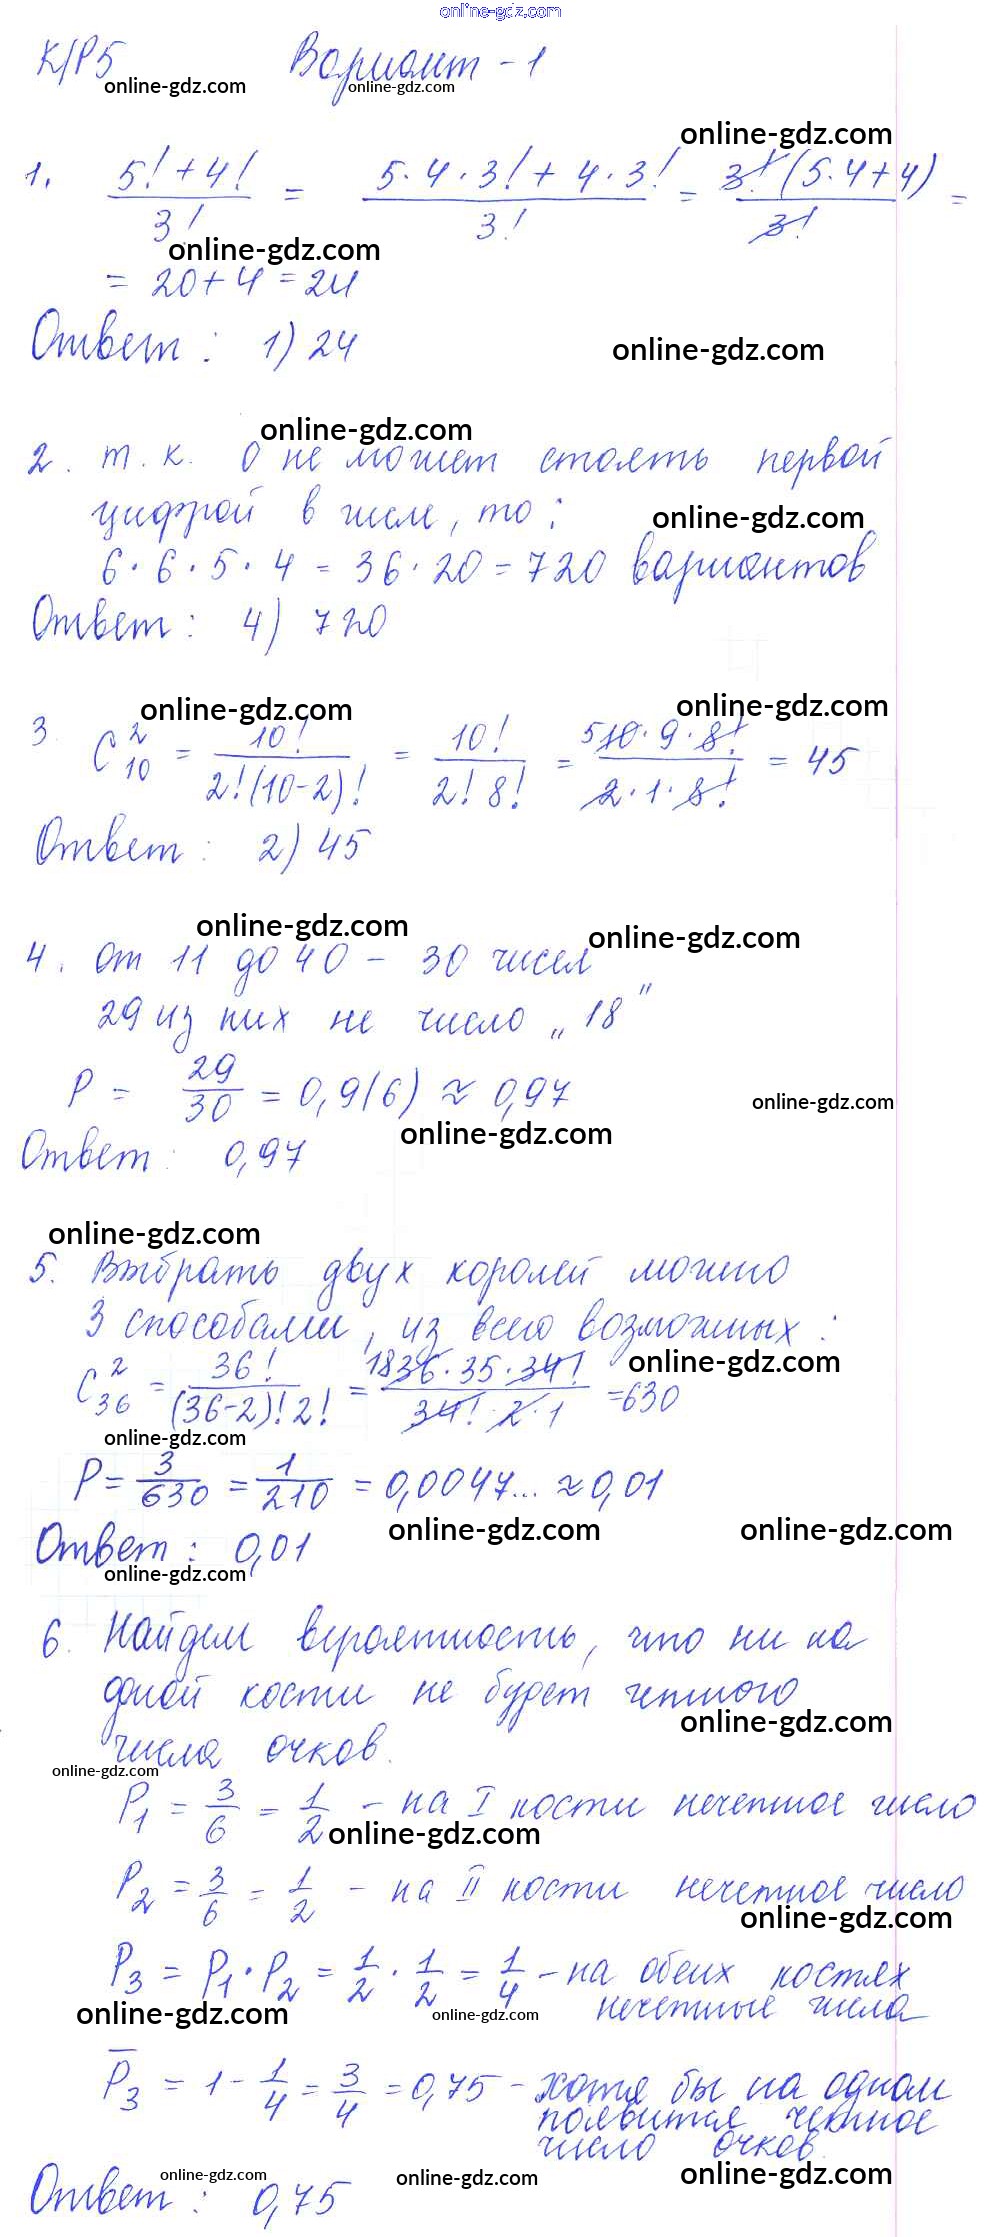 online-gdz.com
К/Р5 Вариант - 1
online-gdz.com online-gdz.com
online-gdz.com
1. (5! + 4!)/3! = (5·4·3! + 4·3!)/3! = 3!(5·4+4)/3! =
online-gdz.com
= 20 + 4 = 24
Ответ: 1) 24
online-gdz.com
online-gdz.com
2. т.к. 0 не может стоять первой
цифрой в числе, то:
online-gdz.com
6·6·5·4 = 36·20 = 720 вариантов
Ответ: 4) 720
online-gdz.com online-gdz.com
3. C²₁₀ = 10!/(2!(10-2)!) = 10!/(2! 8!) = 5 10·9·8!/(2·1·8!) = 45
Ответ: 2) 45
online-gdz.com online-gdz.com
4. От 11 до 40 - 30 чисел
29 из них не число „18"
P = 29/30 = 0,9(6) ≈ 0,97
online-gdz.com
online-gdz.com
Ответ: 0,97
online-gdz.com
5. Выбрать двух королей можно
3 способами, из всего возможных:
online-gdz.com
C²₃₆ = 36!/((36-2)! 2!) = 18 36·35·34!/(34!·2·1) = 630
online-gdz.com
P = 3/630 = 1/210 = 0,0047... ≈ 0,01
online-gdz.com online-gdz.com
Ответ: 0,01
online-gdz.com
6. Найдем вероятность, что ни на
одной кости не будет четного
online-gdz.com
числа очков.
online-gdz.com
P₁ = 3/6 = 1/2 - на I кости нечетное число
online-gdz.com
P₂ = 3/6 = 1/2 - на II кости нечетное число
online-gdz.com
P₃ = P₁·P₂ = 1/2 · 1/2 = 1/4 - на обеих костях
нечетные числа
online-gdz.com online-gdz.com
P̅₃ = 1 - 1/4 = 3/4 = 0,75 - хотя бы на одном
появится четное
число очков.
online-gdz.com online-gdz.com online-gdz.com
Ответ: 0,75